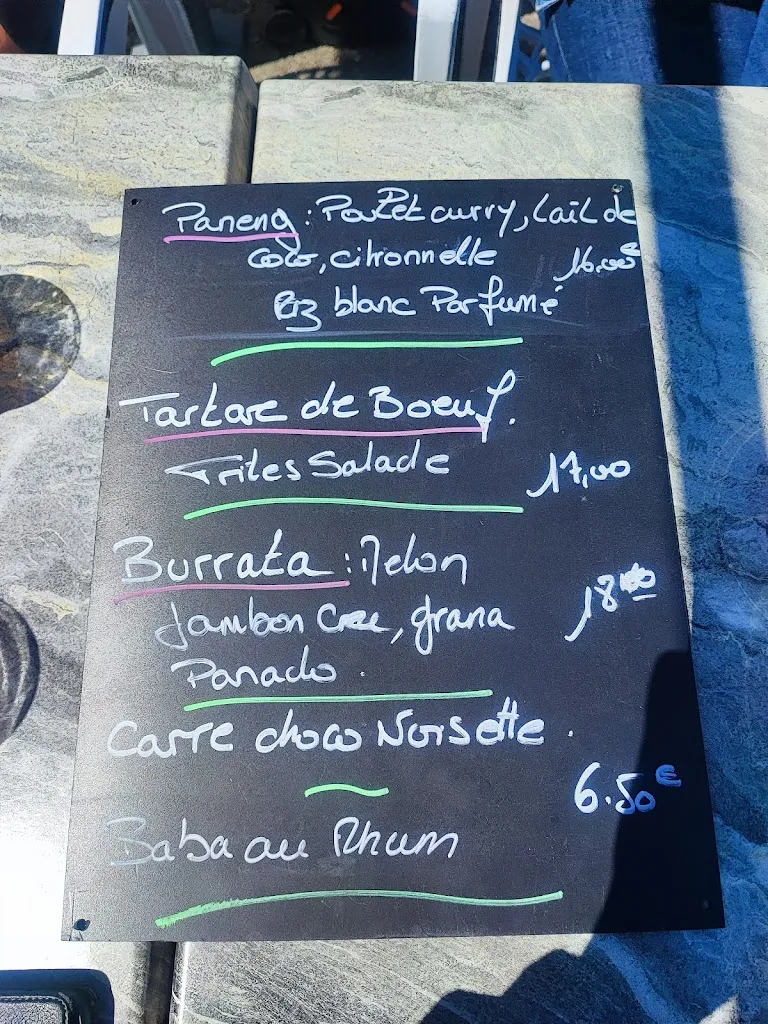 Paneng : Poulet curry, lait de
coco, citronnelle 16.00€
Riz blanc Parfumé
Tartare de Boeuf.
Frites Salade 17,00
Burrata : Melon
Jambon Cru, grana 18.00
Panado.
Carre choco Noisette.
6.50€
Baba au Rhum